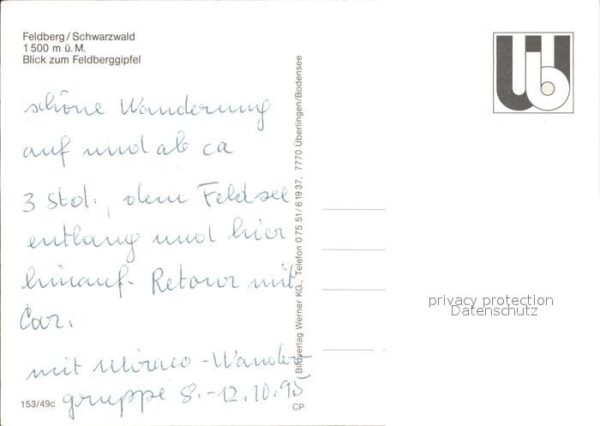 Feldberg/Schwarzwald
1500 m ü. M.
Blick zum Feldberggipfel
schöne Wanderung
auf und ab ca
3 Std., dem Feldsee
entlang und hier
hinauf. Retour mit
Car.
mit Miraco-Wander-
gruppe 8.-12.10.95
153/49c
CP
Bildverlag Werner KG., Telefon 0 75 51/6 19 37, 7770 Überlingen/Bodensee
privacy protection
Datenschutz